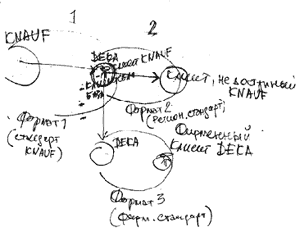 1
2
KNAUF
DEBA
клиент KNAUF
Клиент, не достижимый
KNAUF
Формат 1
(стандарт
KNAUF)
Формат 2
(регион. стандарт)
Фирменный
клиент DEBA
DEBA
Формат 3
(фирм. стандарт)